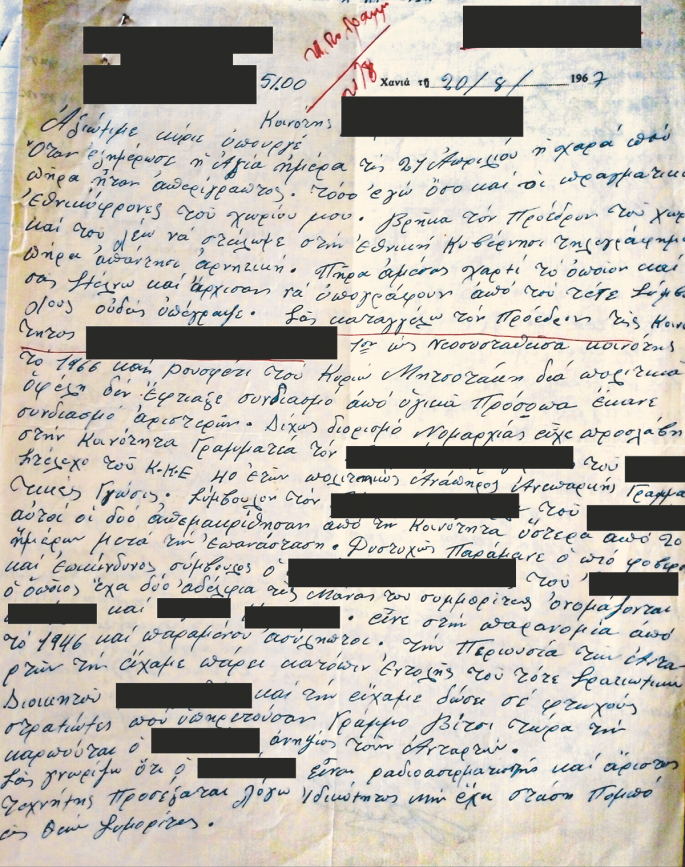 5100
Χανιά τῇ 20/8/1967
Ἀξιώτιμε κύριε ὑπουργέ
Κοινότης
Ὅταν ἐξημέρωσε ἡ Ἁγία ἡμέρα τῆς 21 Ἀπριλίου ἡ χαρά ποὺ
πῆρα ἦταν ἀπερίγραπτος. τόσο ἐγώ ὅσο καὶ οἱ πραγματικο
Ἐθνικόφρονες τοῦ χωρίου μου. Βρῆκα τόν Πρόεδρον τοῦ χωρ
καὶ τοῦ λέω νά στείλωμε στήν Ἐθνική Κυβέρνησι τηλεγράφημα
πῆρα ἀπάντησι ἀρνητική. Πῆρα ἀμέσος χαρτί τό ὁποίον καὶ
σας στέλνω καί ἄρχισαν νά ὑπογράφουν ἀπό τοῦ τότε Συμβ
λίους οὐδείς ὑπέγραψε. Σᾶς καταγγέλω τόν Πρόεδρον τῆς Κοινο
τητος 1ον ὡς Νεοσυσταθεῖσα κοινότης
τό 1966 καὶ ρουσφέτι τοῦ Κυρίου Μητσοτάκη διά πολιτικά
ὀφέλη δέν ἔφτιαξε συνδιασμό ἀπό ὑγιικά Πρόσοπα ἔκανε
συνδιασμό ἀριστερῶν. Δίχως διορισμό Νομαρχίας εἶχε προσλάβη
στήν Κοινότητα Γραμματέα τόν τοῦ
Στέλεχο τοῦ Κ.Κ.Ε 40 ἐτῶν πολιτικῶς Ἀνάπηρος Ἀνεπαρκής Γραμμα
τικές Γνώσις. Σύμβουλον τόν τοῦ
αὐτοί οἱ δυό ἀπεμακρύθησαν ἀπό τήν Κοινότητα ὕστερα ἀπό 20
ἡμέρων μετά τήν Ἐπανάσταση. Δυστυχῶς Παράμενε ὁ πιό φοβερός
καί ἐπικίνδυνος σύμβουλος ὁ τοῦ
ὁ ὁποῖος ἔχει δυό ἀδέλφια τῆς Μάνας του συμμορίτες ὀνομάζονται
καί . εἶνε στήν παρανομία ἀπό
τό 1946 καί παραμένουν ἀσύλληπτοι. τήν Περιουσία τῶν Ἀντα
ρτῶν τήν εἴχαμε πάρει κατόπιν Ἐντολῆς τοῦ τότε Στρατιωτικοῦ
Διοικητοῦ καί τήν εἴχαμε δώσει σέ φτωχούς
στρατιώτες πού ὑπηρετοῦσαν Γράμμο Βίτσι τώρα τήν
καρποῦται ὁ ἀνηψιός τῶν Ἀνταρτῶν.
Σᾶς γνωρίζω ὅτι ὁ εἶναι ραδιοασιρματιστής καί ἄριστος
τεχνήτης Προσέξαται λόγω ἰδικότητος μήν ἔχη στάση Πομπό
Συμορίτες.